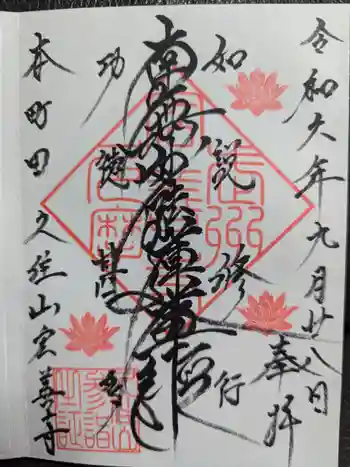 令和六年九月廿八日
奉拝
如説修行
南無妙法蓮華経
功徳甚多
本町田 久住山宏善寺